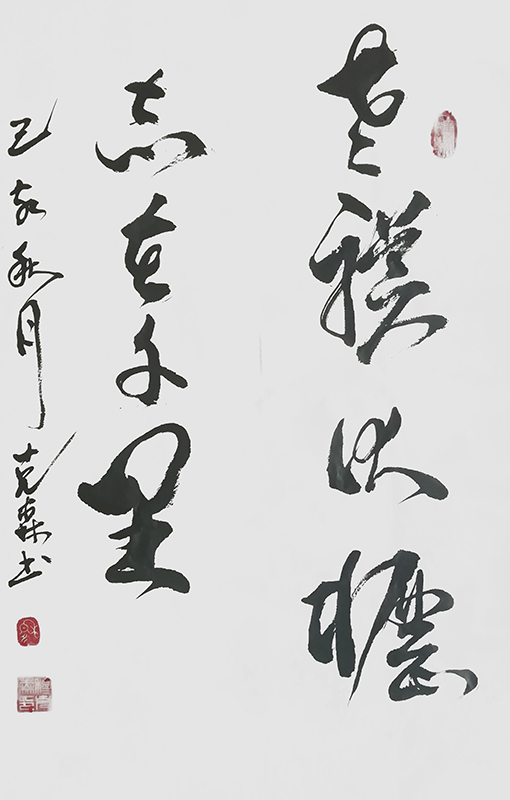 老驥伏櫪
志在千里
己亥秋月 克森书